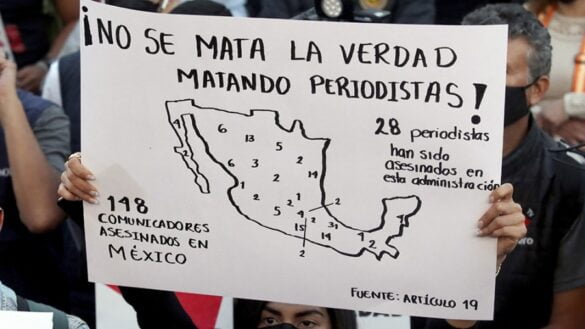 ¡NO SE MATA LA VERDAD
MATANDO PERIODISTAS!
28 periodistas
han sido
asesinados en
esta administración
4
6
13
5
2
2
6
3
2
14
2
1
1
2
5
4
2
2
15
31
14
1
4
2
2
148
COMUNICADORES
ASESINADOS EN
MÉXICO
FUENTE: ARTÍCULO 19